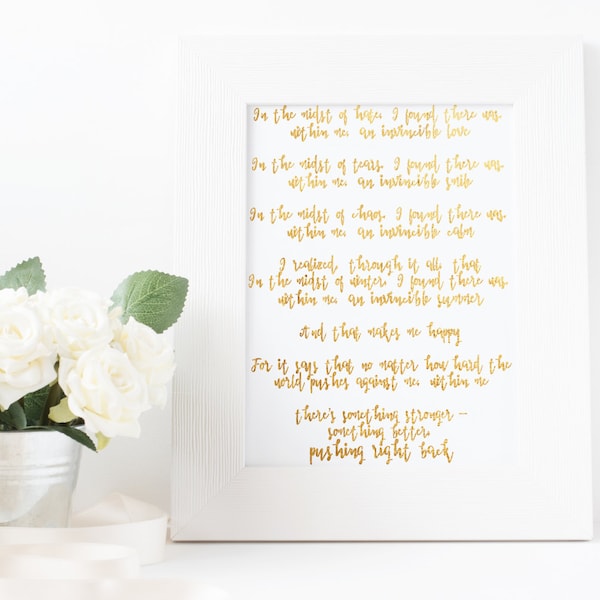 In the midst of hate, I found there was,
within me, an invincible love
In the midst of tears, I found there was,
within me, an invincible smile
In the midst of chaos, I found there was,
within me, an invincible calm
I realized, through it all, that
In the midst of winter, I found there was,
within me, an invincible summer
And that makes me happy
For it says that no matter how hard the
world pushes against me, within me
there's something stronger –
something better,
pushing right back